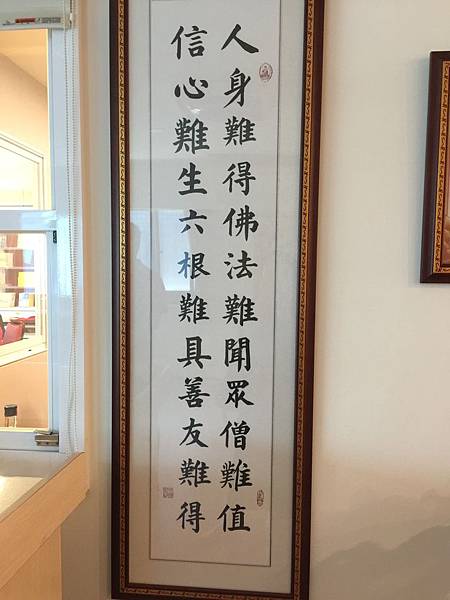 人身難得佛法難聞眾僧難值
信心難生六根難具善友難得